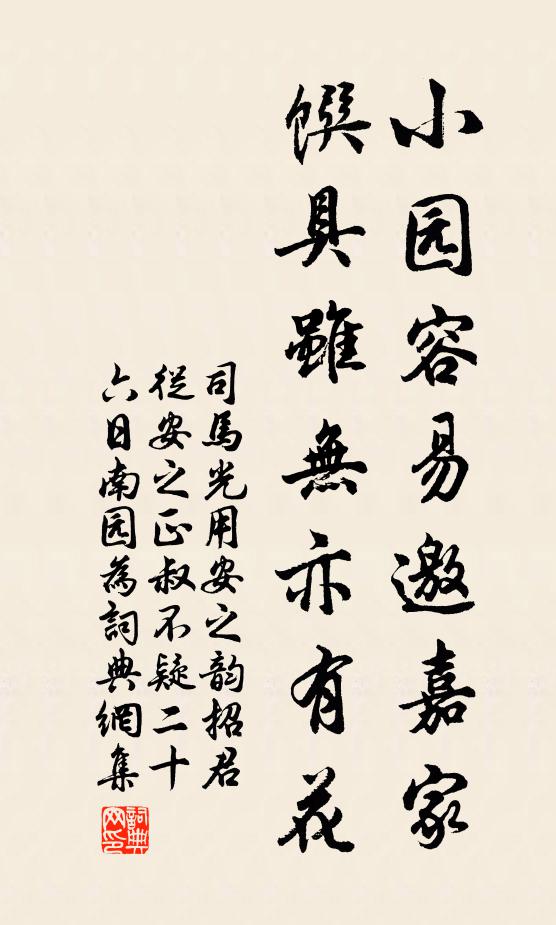 小园容易邀嘉家
馔具雖無亦有花
司馬光用安之韵招君
從安之正叔不疑二十
六日南园為詞典網集
詞典
网印